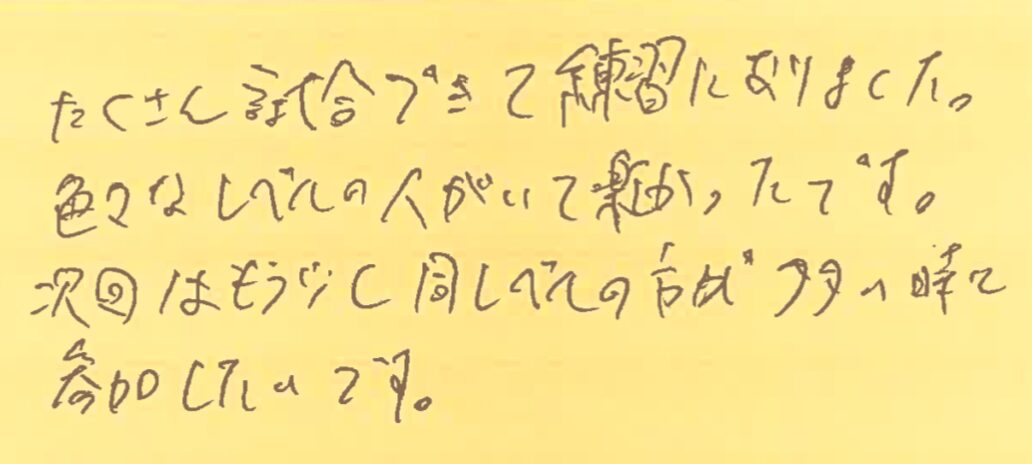 たくさん試合できて練習になりました。
色々なレベルの人がいて楽しかったです。
次回はもう少し同レベルの方が多い時に
参加したいです。